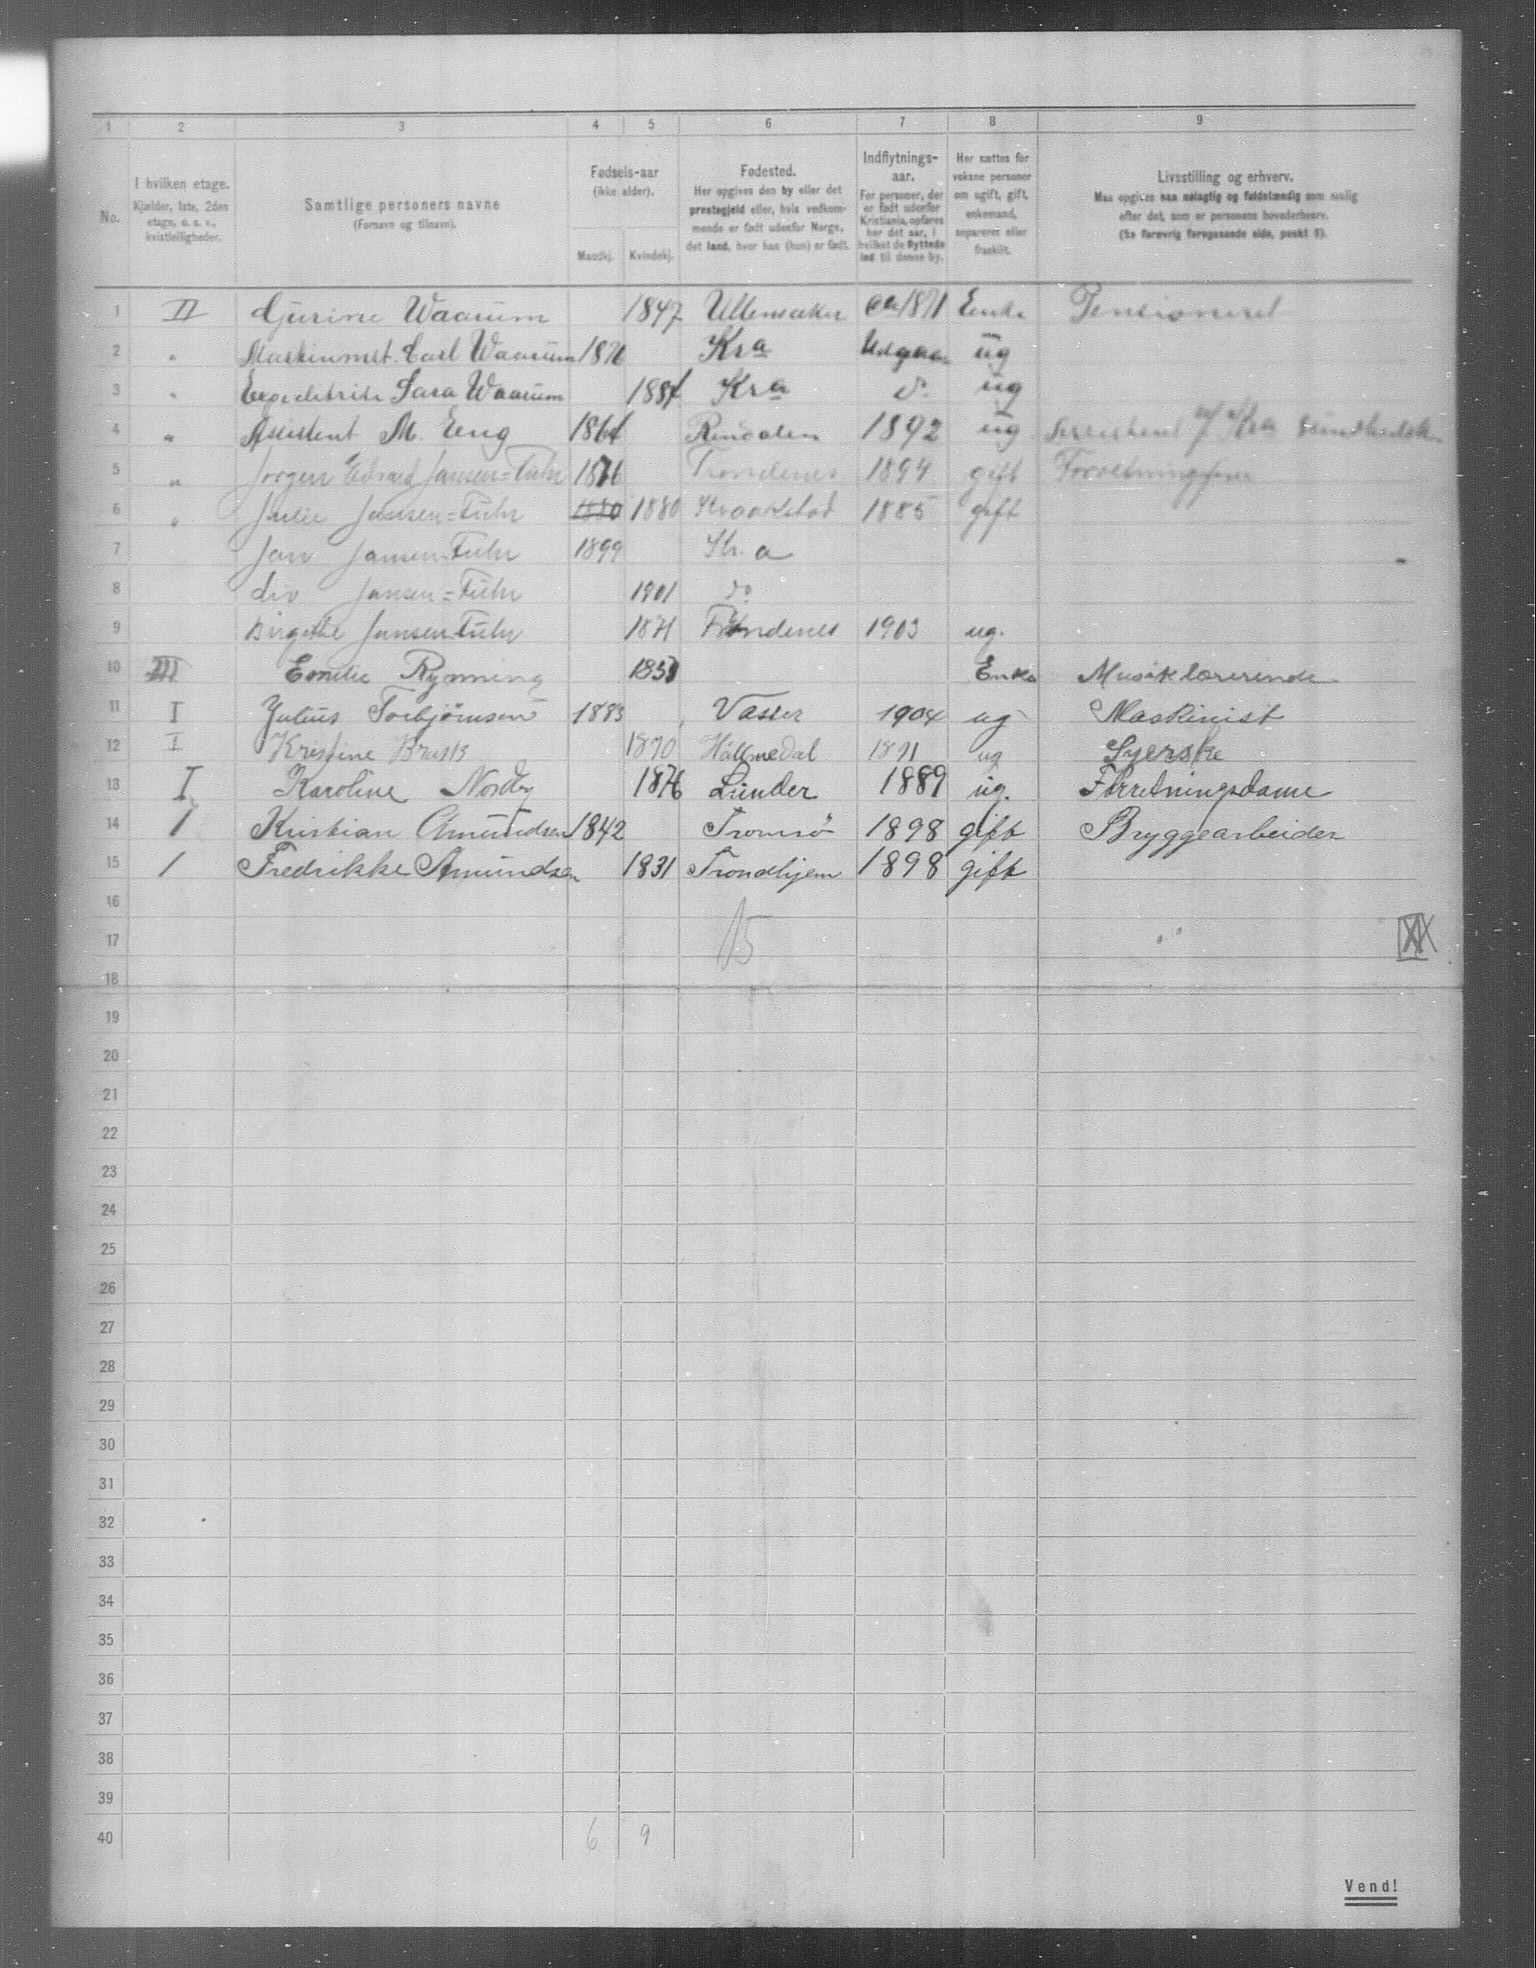 1 2 3 4 5 6 7 8 9
No.
I hvilken etage.
Kjælder, 1ste, 2den
etage, o. s. v.,
kvistleiligheder.
Samtlige personers navne
(Fornavn og tilnavn).
Fødsels-aar
(ikke alder).
Mandkj. Kvindekj.
Fødested.
Her opgives den by eller det
prestegjeld eller, hvis vedkom-
mende er født udenfor Norge,
det land, hvor han (hun) er født.
Indflytnings-
aar.
For personer, der
er født udenfor
Kristiania, opføres
her det aar, i
hvilket de flyttede
ind til denne by.
Her sættes for
voksne personer
om ugift, gift,
enkemand,
separeret eller
fraskilt.
Livsstilling og erhverv.
Maa opgives saa nøiagtig og fuldstændig som mulig
efter det, som er personens hovederhverv.
(Se forøvrig foregaaende side, punkt 9).
1 II Gurine Waarum 1847 Ullensaker ca 1871 Enke Pensioneret
2 " Maskinmst. Carl Waarum 1876 Kra ug
3 " Expeditrice Sara Waarum 1884 Kra do ug
4 " Assistent M. Eeng 1864 Rendalen 1892 ug Assistent Kra
5 " Jørgen Edvard Jansen=Fuhr 1876 Trondenes 1894 gift
6 " Julie Jansen=Fuhr 1880 1880 Kraakstad 1885 gift
7 Jan Jansen=Fuhr 1899 Kr. a
8 Liv Jansen=Fuhr 1901 do
9 Birgithe Jansen=Fuhr 1871 Trondenes 1903 ug.
10 III Emilie Rynning 1851 Enke Musiklærerinde
11 I Julius Torbjørnsen 1883 Vasser 1904 ug Maskinist
12 I Kristine Brusk 1870 Hallmedal 1891 ug Syerske
13 I Karoline Nordby 1876 Lunder 1889 ug. Forretningsdame
14 1 Kristian Amundsen 1842 Tromsø 1898 gift Bryggearbeider
15 1 Fredrikke Amundsen 1831 Trondhjem 1898 gift
16
15
17
18
19
20
21
22
23
24
25
26
27
28
29
30
31
32
33
34
35
36
37
38
39
40 6 9
Vend!